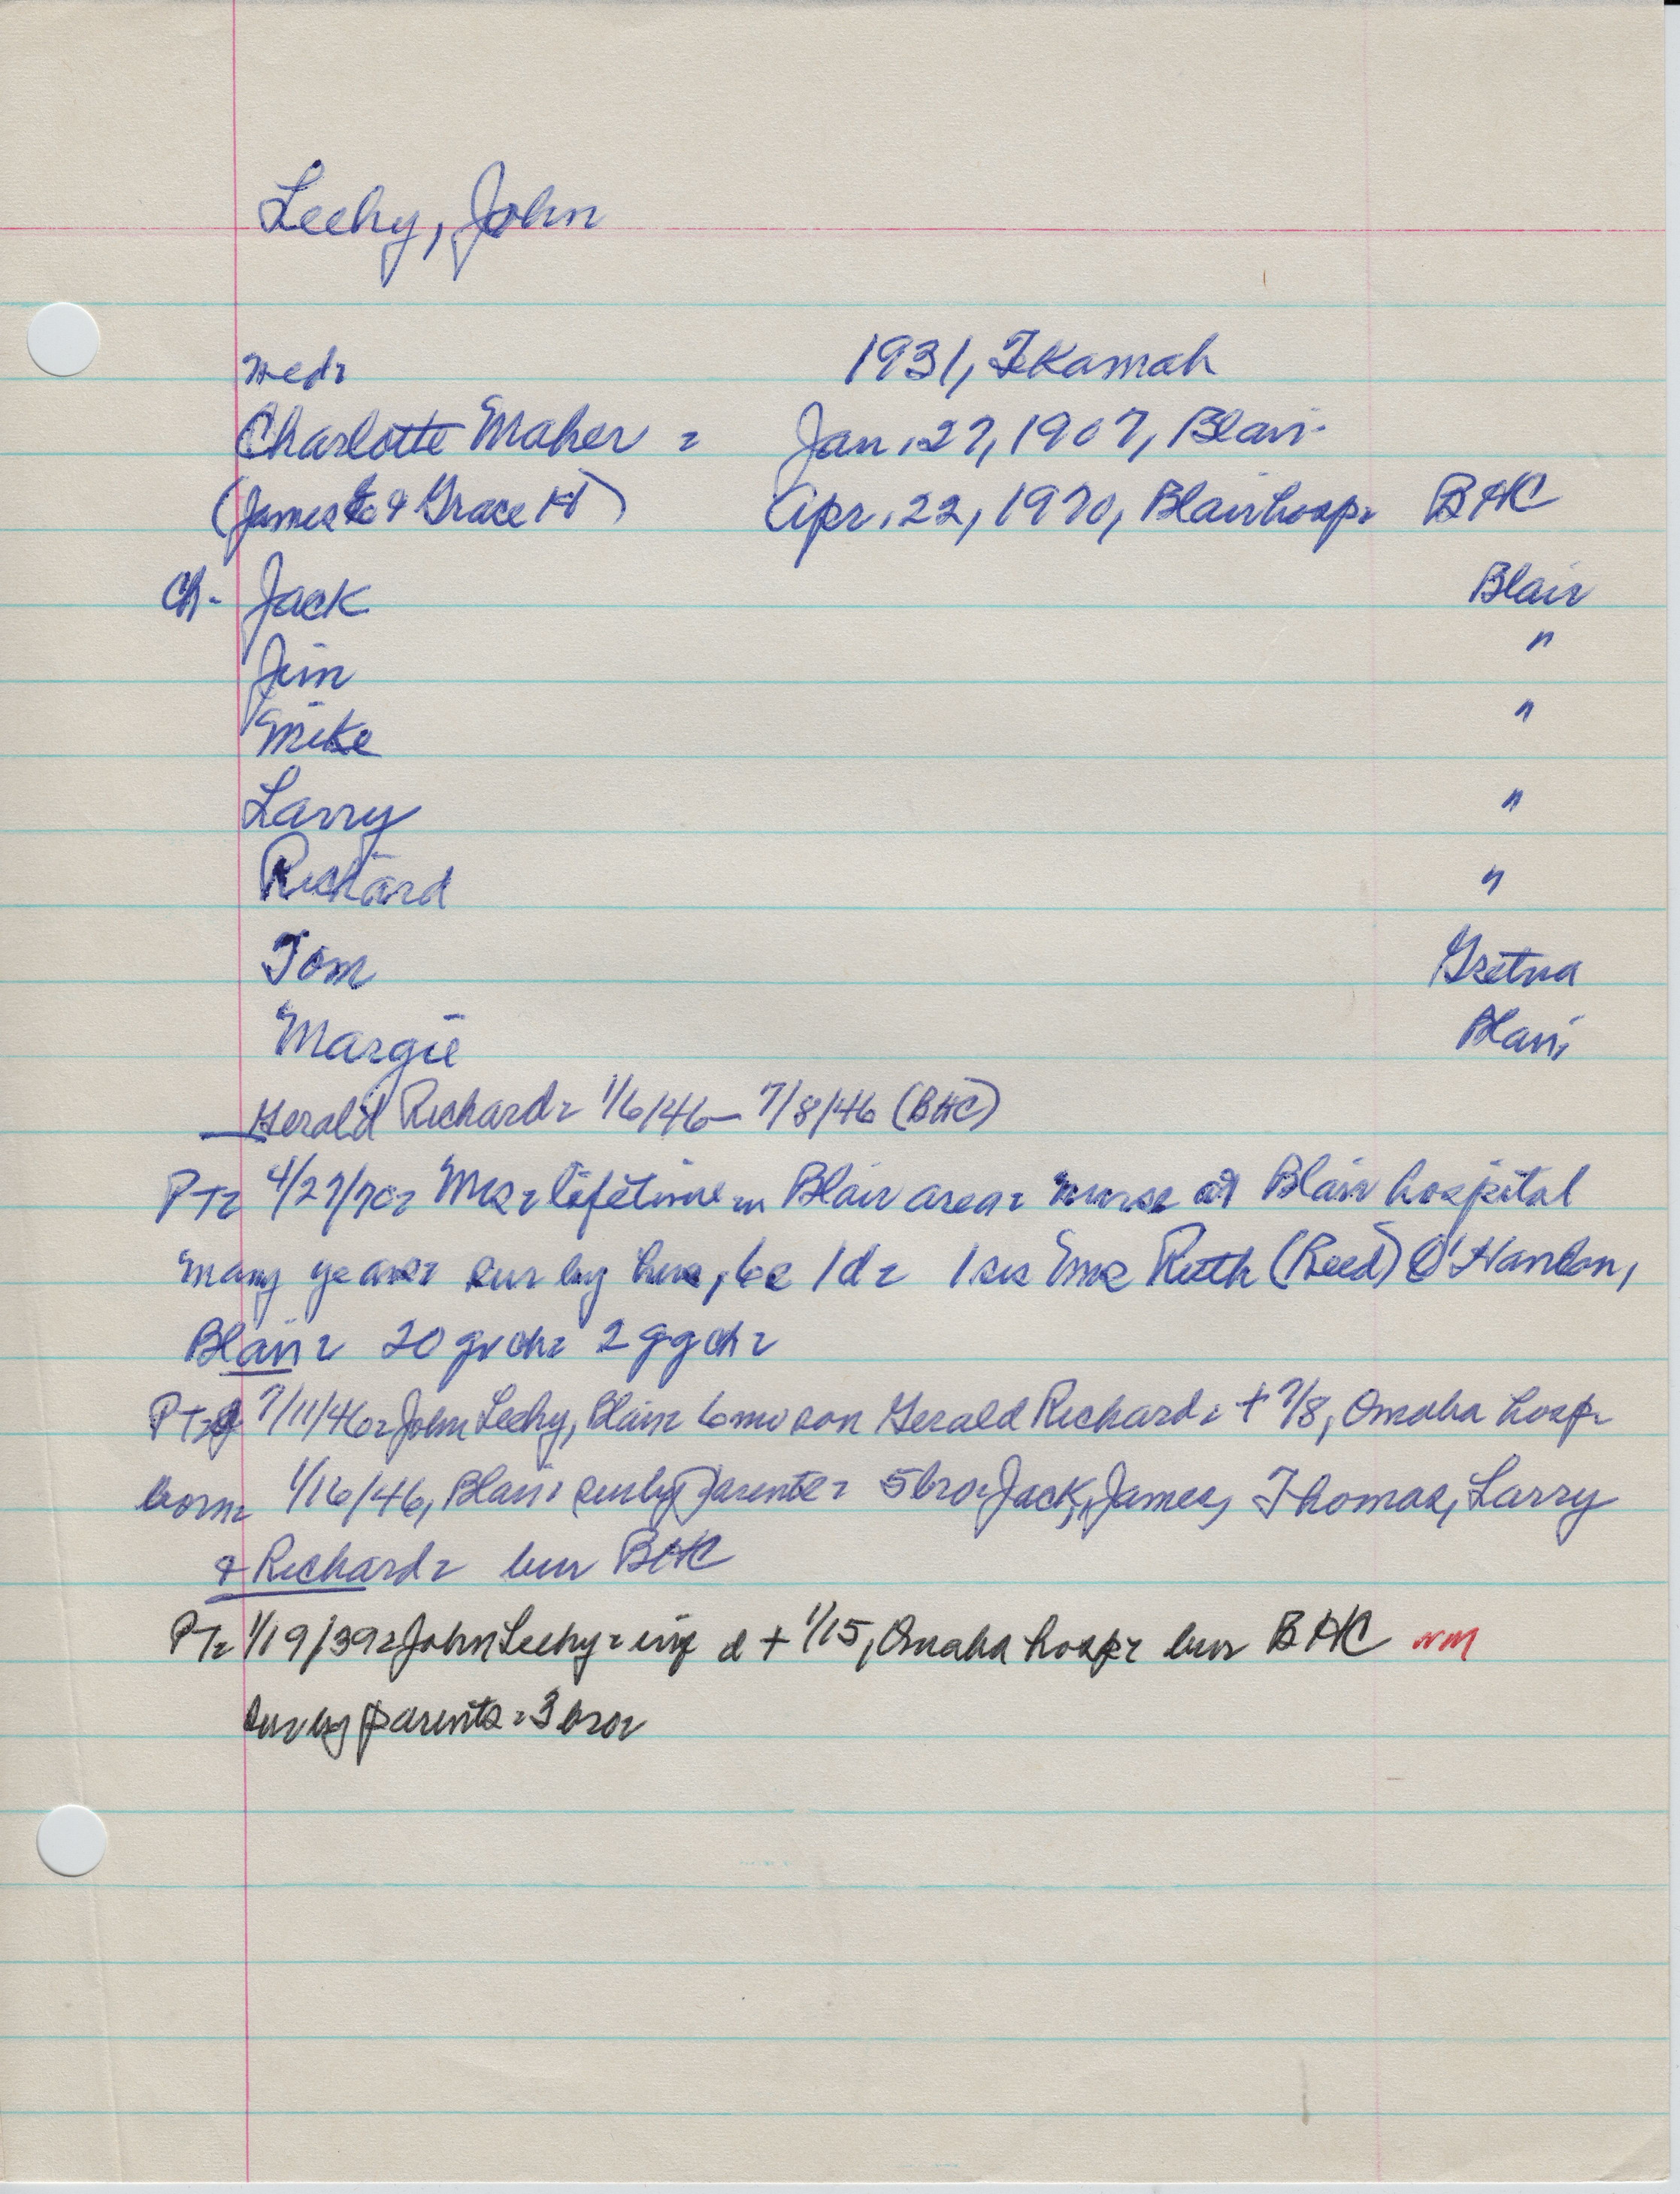 Leehy, John
wed- 1931, Tekamah
Charlotte Maher - Jan. 27, 1907, Blair-
(James & Grace H) Apr. 22, 1970, Blair hosp- BHC
Ch- Jack Blair
Jim "
Mike "
Larry "
Richard "
Tom Gretna
Margie Blair
Gerald Richard- 1/6/46- 7/8/46 (BHC)
PT- 4/27/70- Mrs- lifetime in Blair area- nurse at Blair hospital
many years- sur by hus, 6s 1d- 1 sis Mrs Ruth (Reed) O'Hanlon,
Blair- 20 grch- 2 ggch-
PT- 7/11/46- John Leehy, Blair- 6 mo son Gerald Richard- + 7/8, Omaha hosp-
born- 1/16/46, Blair- sur by parents- 5 bro- Jack, James, Thomas, Larry
& Richard- bur BHC
PT- 1/19/39- John Leehy- inf d + 1/15, Omaha hosp- bur BHC
sur by parents- 3 bro-